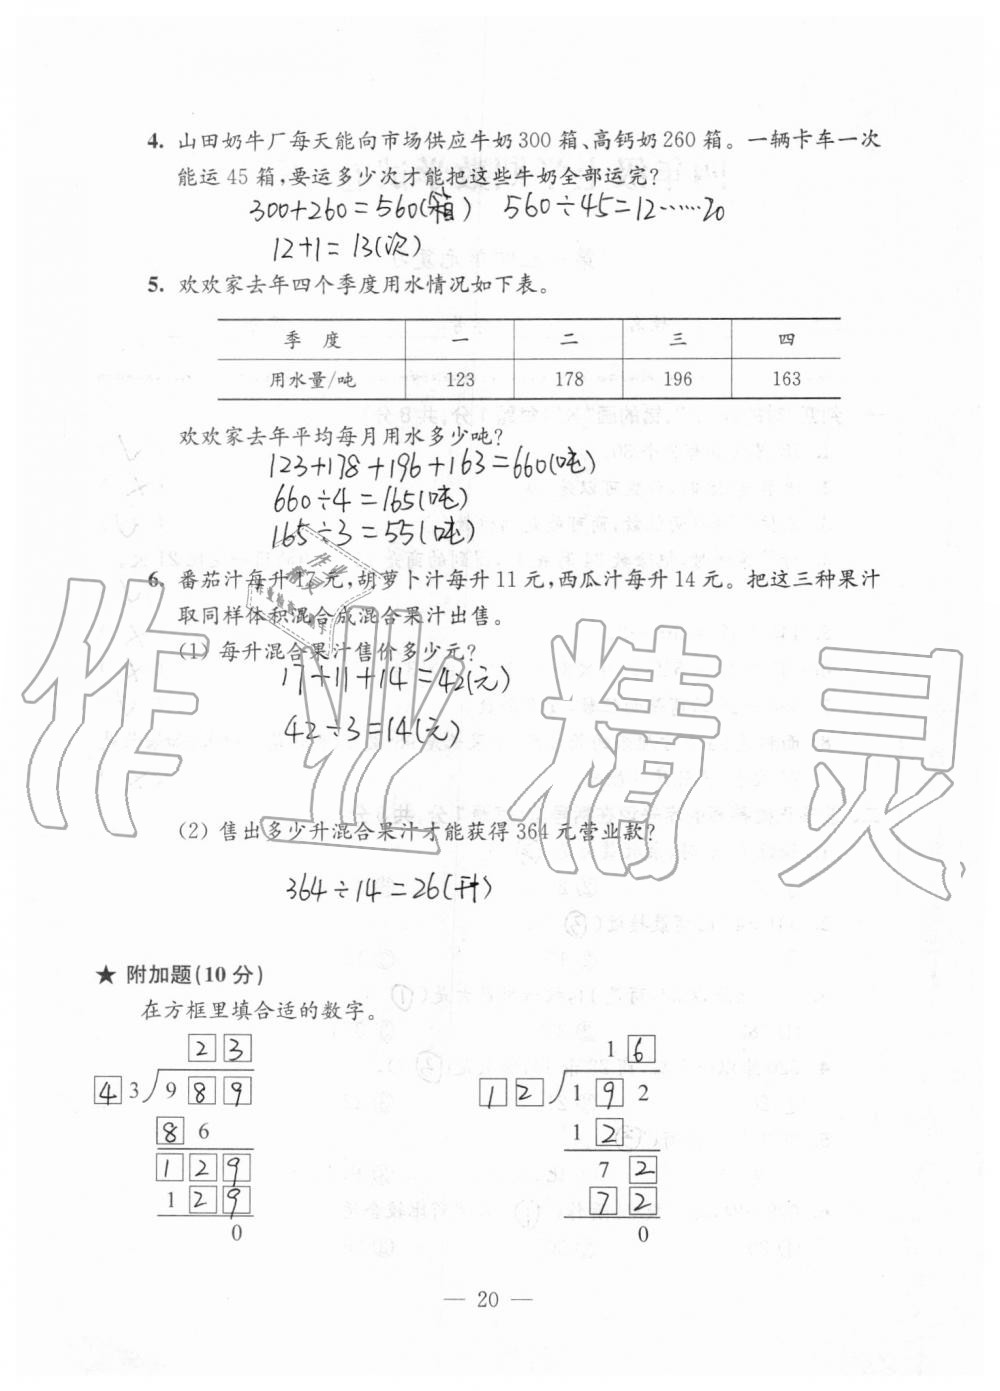 4. 山田奶牛厂每天能向市场供应牛奶300箱、高钙奶260箱。一辆卡车一次
能运45箱,要运多少次才能把这些牛奶全部运完?
300+260=560(箱) 560÷45=12……20
12+1=13(次)
5. 欢欢家去年四个季度用水情况如下表。
季 度 一 二 三 四
用水量/吨 123 178 196 163
欢欢家去年平均每月用水多少吨?
123+178+196+163=660(吨)
660÷4=165(吨)
165÷3=55(吨)
6. 番茄汁每升17元,胡萝卜汁每升11元,西瓜汁每升14元。把这三种果汁
取同样体积混合成混合果汁出售。
(1) 每升混合果汁售价多少元?
17+11+14=42(元)
42÷3=14(元)
(2) 售出多少升混合果汁才能获得364元营业款?
364÷14=26(升)
作业精灵
★ 附加题(10分)
在方框里填合适的数字。
2 3
4 3 9 8 9
8 6
1 2 9
1 2 9
0
1 6
1 2 1 9 2
1 2
7 2
7 2
0
— 20 —